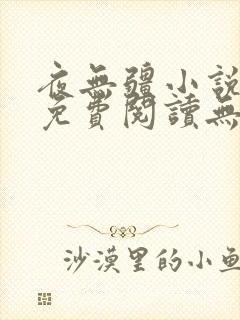 夜無疆小説
免費閱讀無
沙漠里的小魚